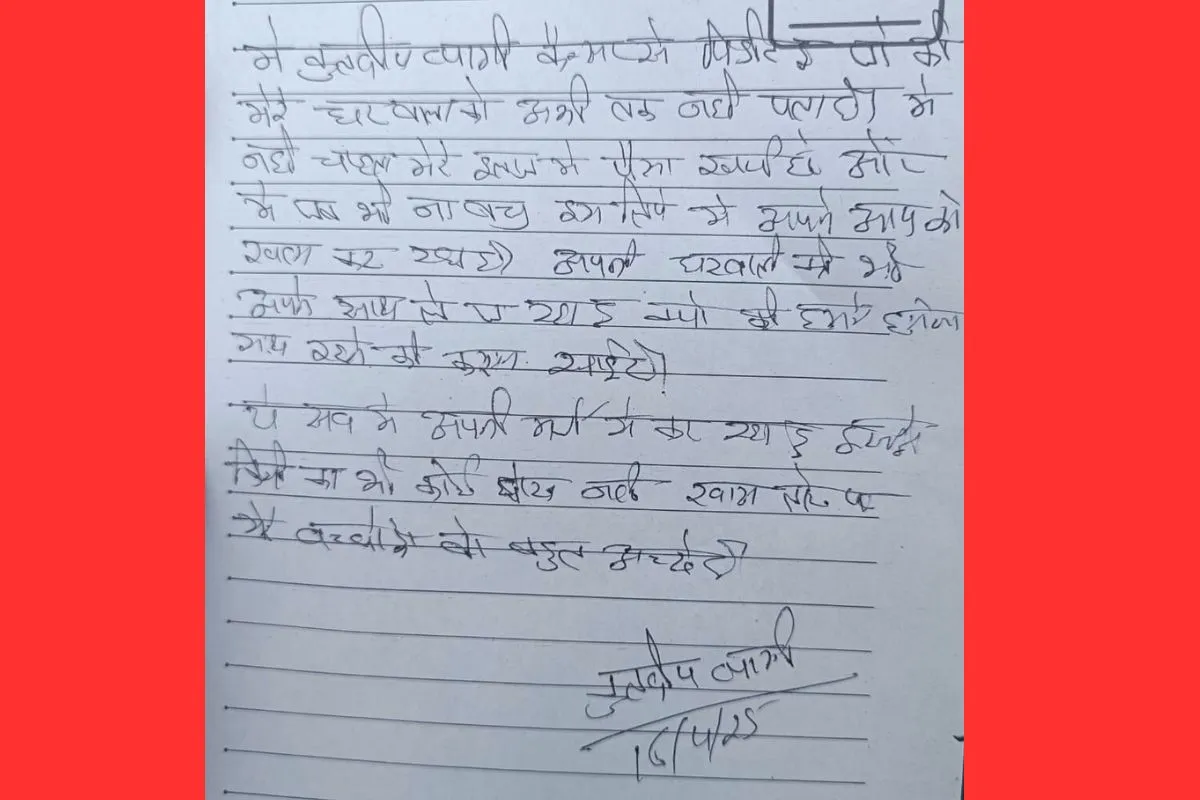 मे कुलदीप त्यागी कैन्सर से पिडीत हु जो की
मेरे घरवालो को अभी तक नही पता है। मे
नही चाहता मेरे इलाज मे पैसा खर्च हो और
मे तब भी ना बचु इस लिये मे अपने आप को
खत्म कर रहा हु। अपनी घरवाली को भी
अपने साथ ले जा रहा हु क्यो की हमने हमेशा
साथ रहने की कसम खाई है।
ये सब मे अपनी मर्जी से कर रहा हु इसमे
किसी का भी कोई दोष नही खास तौर पर
मेरे बच्चो वो बहुत अच्छे है।
कुलदीप त्यागी
16/4/25